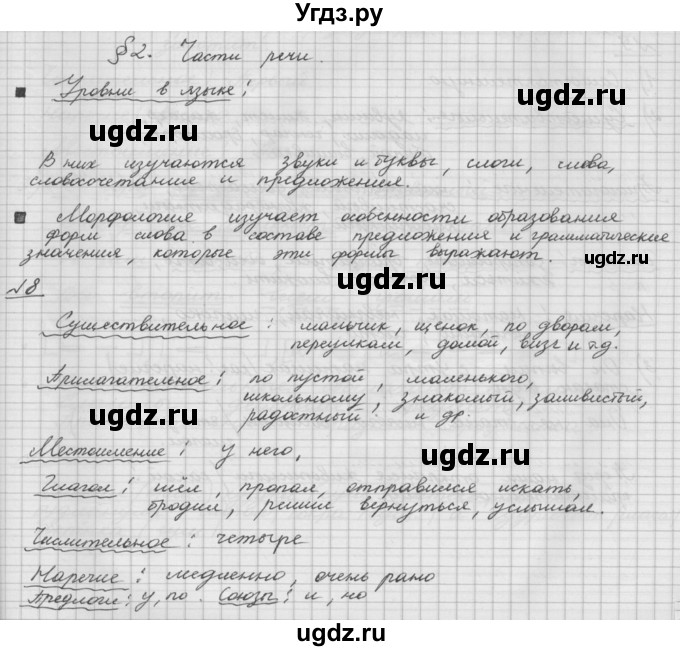 Угдз.ру
§2. Части речи.
Уровни в языке:
ugdz.ru
ugdz.ru
В них изучаются звуки и буквы, слоги, слова,
словосочетания и предложения.
Морфология изучает особенности образования
форм слова в составе предложения и грамматические
значения, которые эти формы выражают.
ugdz.ru
ugdz.ru
№8
Существительное: мальчик, щенок, по дворам,
переулкам, домой, визг и т.д.
Прилагательное: по пустой, маленького,
школьному, знакомый, заливистый,
радостный и др.
ugdz.ru
Местоимение: у него,
ugdz.ru
Глагол: шёл, пропал, отправился искать,
бродил, решил вернуться, услышал.
ugdz.ru
Числительное: четыре
Наречие: медленно, очень рано
Предлоги: у, по. Союзы: и, но
ugdz.ru